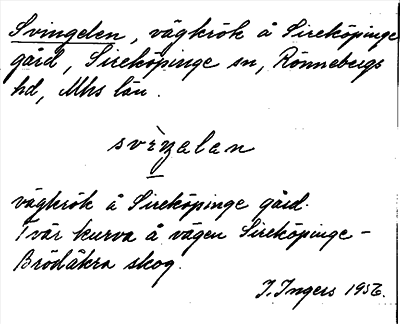 Svingelen, vägkrök å Sireköpinge
gård, Sireköpinge sn, Rönnebergs
hd, Mhs län.
svèŋalan
vägkrök å Sireköpinge gård.
Tvär kurva å vägen Sireköpinge -
Brödåkra skog.
I. Ingers 1956.